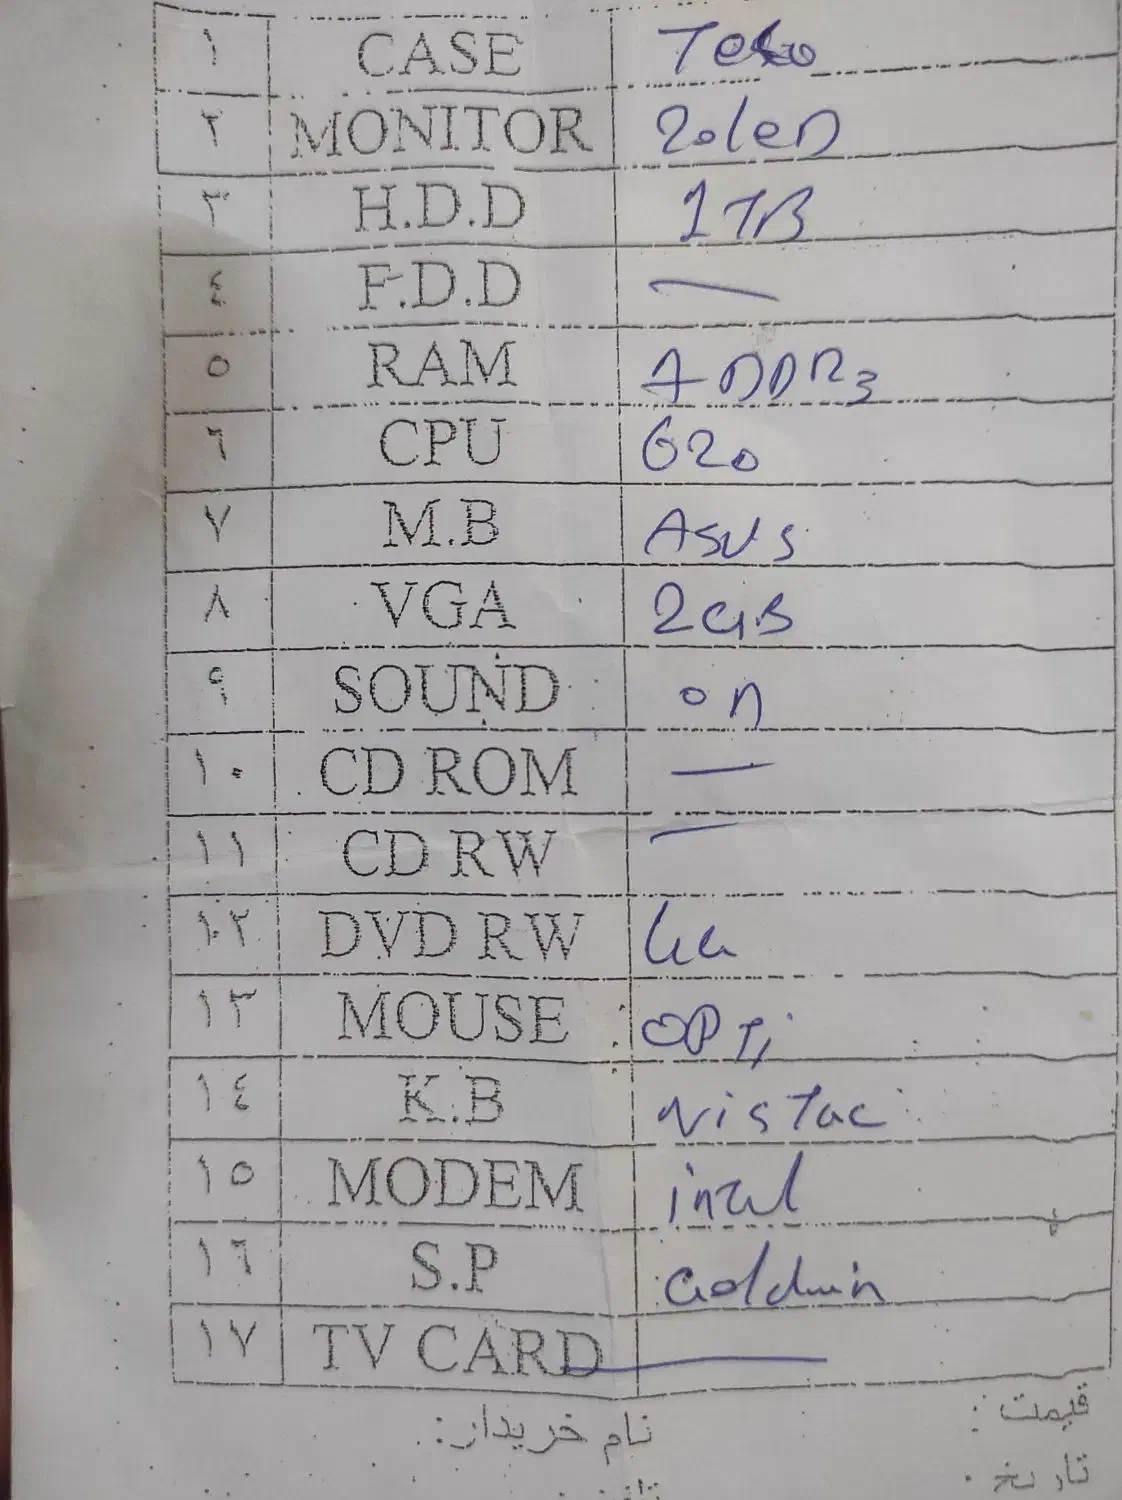 ١ CASE
٢ MONITOR 20 len
٣ H.D.D 1TB
٤ F.D.D —
٥ RAM DDR3
٦ CPU G20
٧ M.B Asus
٨ VGA 2GB
٩ SOUND on
١٠ CD ROM —
١١ CD RW —
١٢ DVD RW
١٣ MOUSE OPTi
١٤ K.B
١٥ MODEM
١٦ S.P Goldwin
١٧ TV CARD —
قیمت: نام خریدار:
تاریخ